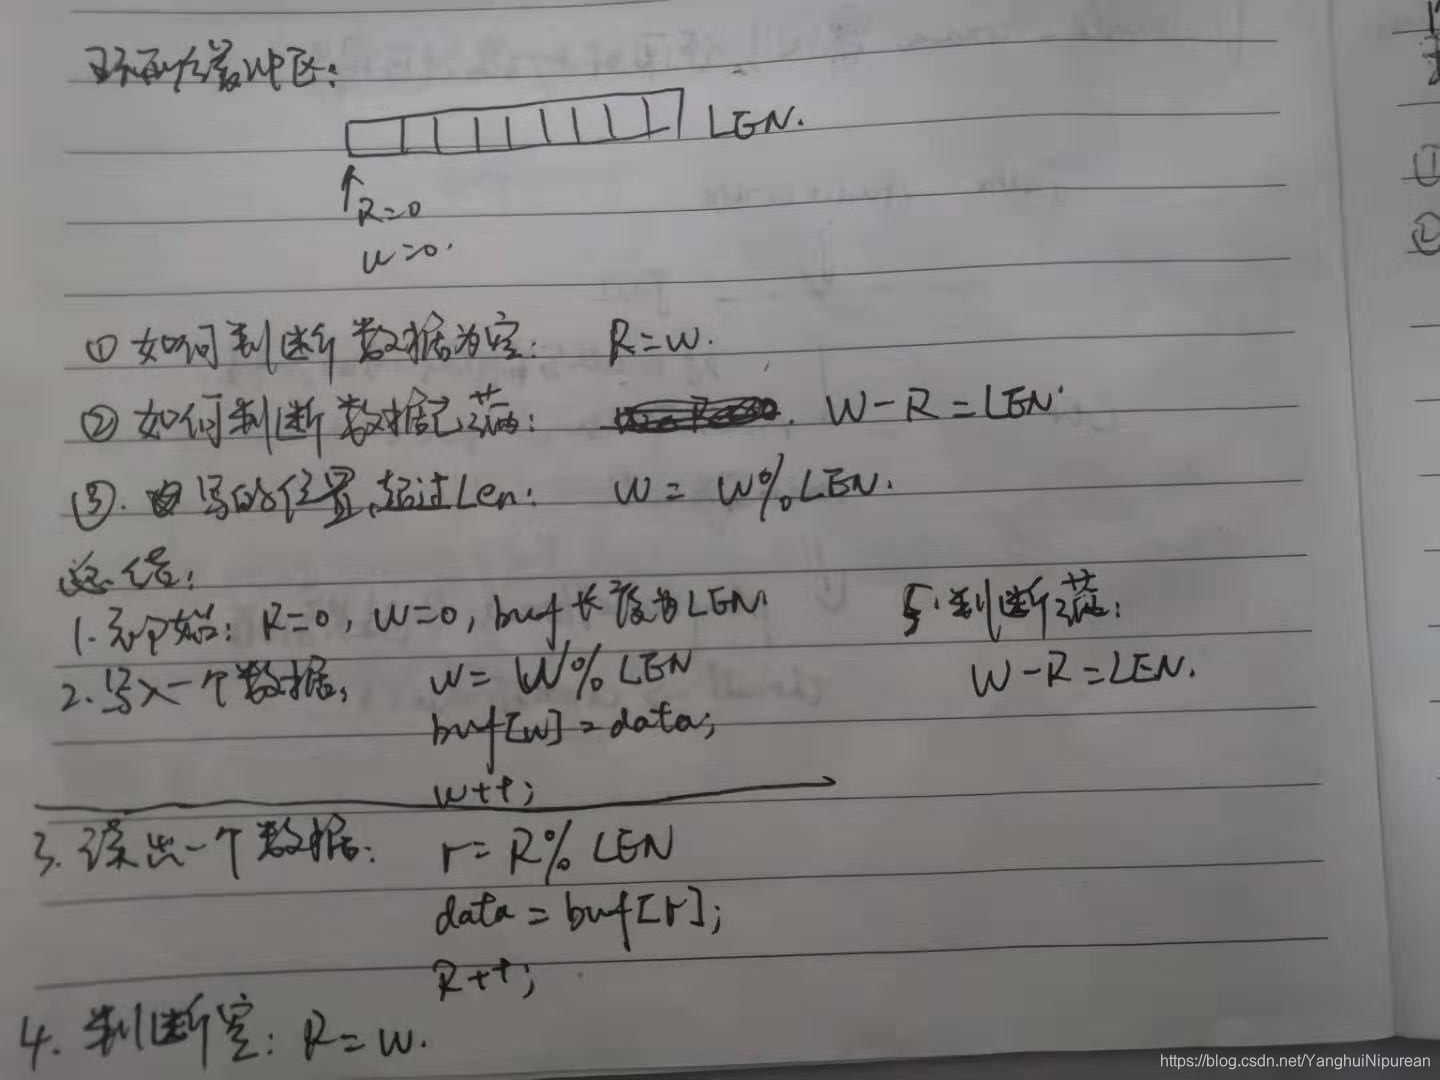 环形缓冲区:
LEN.
R=0
W=0.
① 如何判断数据为空: R=W.
② 如何判断数据已满: W-R=LEN
③. 写的位置超过Len: W= W%LEN.
总结:
1.初始: R=0, W=0, buf长度为LEN
2.写入一个数据: w= W% LEN
buf[w]=data;
W++;
3.读出一个数据: r= R% LEN
data = buf[r];
R++;
4.判断空: R=W.
5.判断满:
W-R=LEN.
①
②
https://blog.csdn.net/YanghuiNipurean